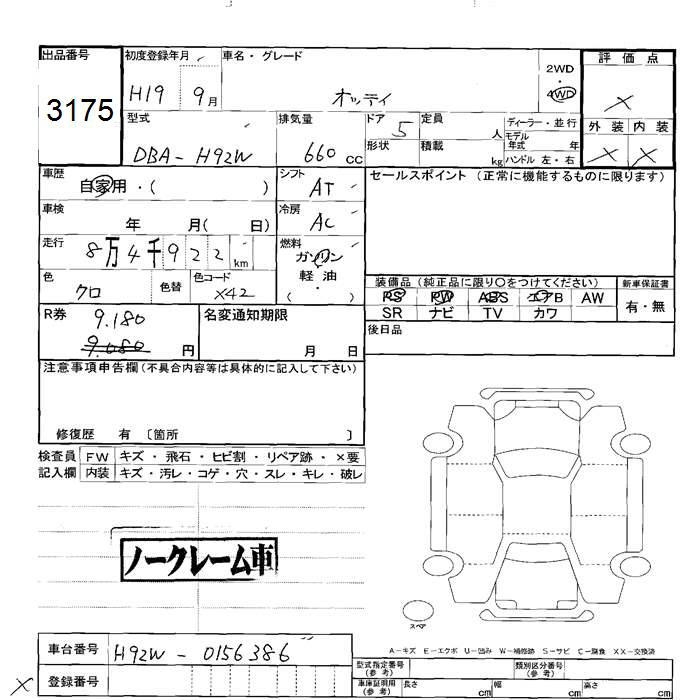 出品番号 初度登録年月 車名・グレード 2WD 評価点
3175 H19 9月 オッティ ・ 4WD ×
型式 排気量 ドア 定員 ディーラー・並行 外装 内装
DBA-H92W 660cc 5 人 モデル年式 年 × ×
形状 積載 kg ハンドル 左・右
車歴 自家用・( ) シフト AT セールスポイント (正常に機能するものに限ります)
車検 年 月( 日) 冷房 AC
走行 8万4千922km 燃料 ガソリン
軽油
( )
色 クロ 色替 色コード X42 装備品 (純正品に限り○をつけてください) 新車保証書
PS PW ABS エアB AW 有・無
SR ナビ TV カワ
R券 9.180 名変通知期限 後日品
9.080 円 月 日
注意事項申告欄 (不具合内容等は具体的に記入して下さい)
修復歴 有 〔箇所 〕
検査員 FW キズ・飛石・ヒビ割・リペア跡・×要
記入欄 内装 キズ・汚レ・コゲ・穴・スレ・キレ・破レ
ノークレーム車
スペア
A-キズ E-エクボ U-凹み W-補修跡 S-サビ C-腐食 XX-交換済
車台番号 H92W-0156386 型式指定番号(参考) 類別区分番号(参考)
× 登録番号 車庫証明用(参考) 長さ cm 幅 cm 高さ cm